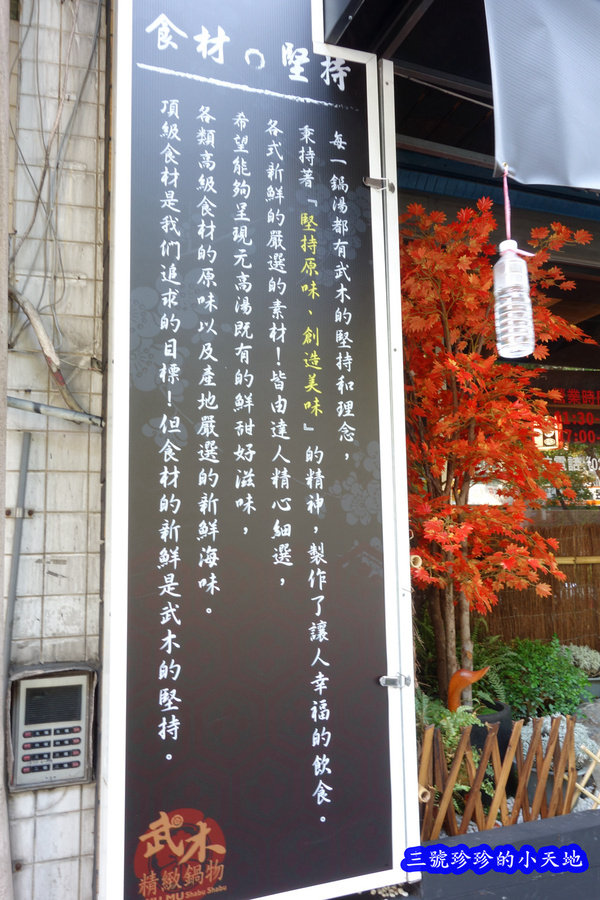 食材の堅持
每一鍋湯都有武木的堅持和理念，
秉持著『堅持原味、創造美味』的精神，製作了讓人幸福的飲食。
各式新鮮的嚴選的素材！皆由達人精心細選，
希望能夠呈現元高湯既有的鮮甜好滋味，
各類高級食材的原味以及產地嚴選的新鮮海味。
頂級食材是我们追求的目標！但食材的新鮮是武木的堅持。
武木
精緻鍋物
Shabu Shabu
營業時
11:30
17:00
三號珍珍的小天地